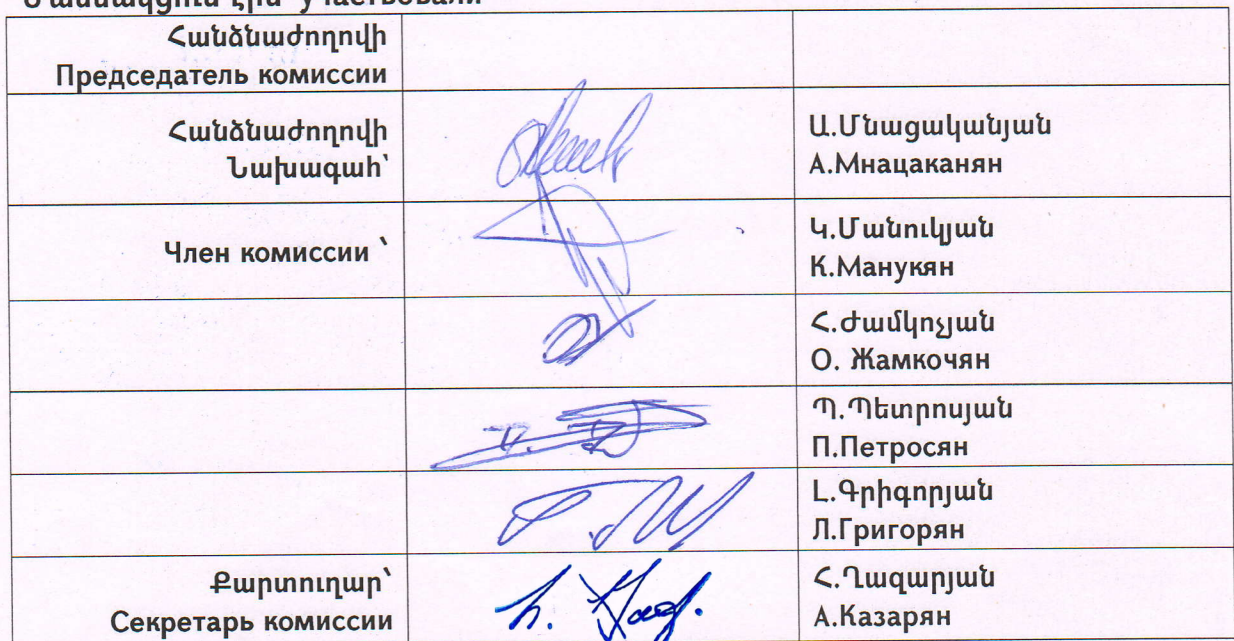 Հանձնաժողովի
Председатель комиссии
Հանձնաժողովի
Նախագահ՝
Ա.Մնացականյան
А.Мнацаканян
Член комиссии ՝
Կ.Մանուկյան
К.Манукян
Հ.Ժամկոչյան
О. Жамкочян
Պ.Պետրոսյան
П.Петросян
Լ.Գրիգորյան
Л.Григорян
Քարտուղար՝
Секретарь комиссии
Հ.Ղազարյան
А.Казарян